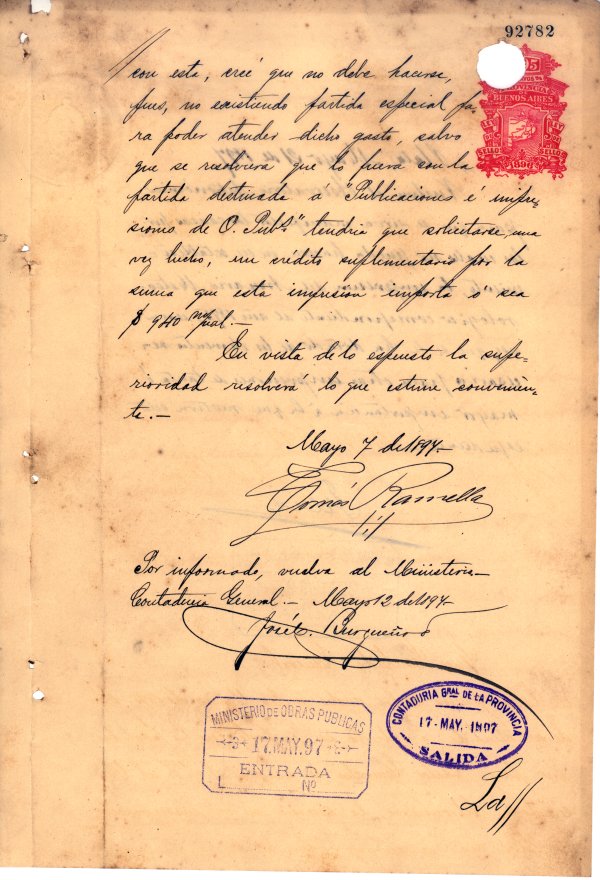 92782
BUENOS AIRES
1897
con esta, creé que no debe hacerse,
pues, no existiendo partida especial pa-
ra poder atender dicho gasto, salvo
que se resolviera que lo fuera con la
partida destinada a "Publicaciones é impre-
siones de O. Pubs." tendria que solicitarse, una
vez hecho, un crédito suplementario por la
suma que esta impresion importa ó sea
$ 940 m/nal.—
En vista de lo espuesto la supe-
rioridad resolverá lo que estime convenien-
te.—
Mayo 7 de 1897—
Tomás Ramella
Por informado, vuelva al Ministerio—
Contaduria General.— Mayo 12 de 1897—
José C. Burgueño
MINISTERIO DE OBRAS PUBLICAS
17.MAY.97
ENTRADA
L Nº
CONTADURIA GRAL DE LA PROVINCIA
17·MAY.1897
SALIDA
La